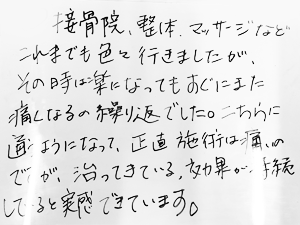 接骨院、整体、マッサージなど
これまでも色々行きましたが、
その時は楽になってもすぐにまた
痛くなるの繰り返でした。こちらに
通うようになって、正直施術は痛いの
ですが、治ってきている、効果が持続
していると実感できています。